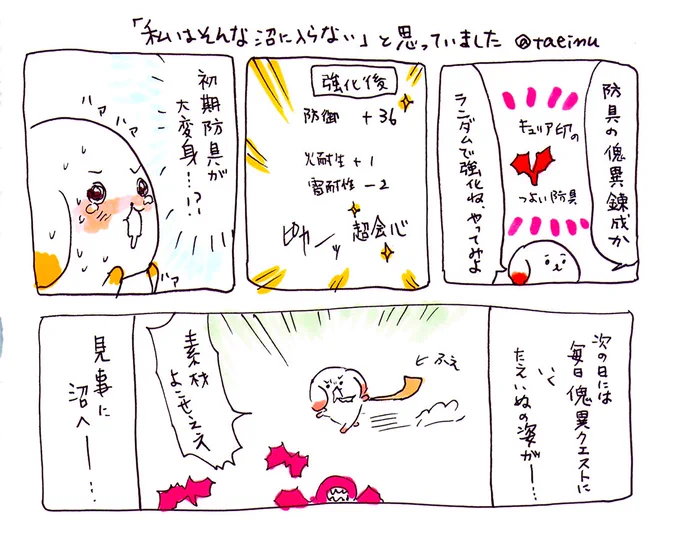 「私はそんな沼に入らない」と思っていました @taeinu
防具の傀異錬成か
キュリア印の
つよい防具
ランダムで強化ね、やってみよ
強化後
防御 +36
火耐性+1
雷耐性-2
超会心
初期防具が
大変身…!?
ハァ
ハァ
ハァ
次の日には
毎日傀異クエストに
いく
たえいぬの姿が―…
ヒトふえ
素材
よこせええ
見事に
沼へ――…